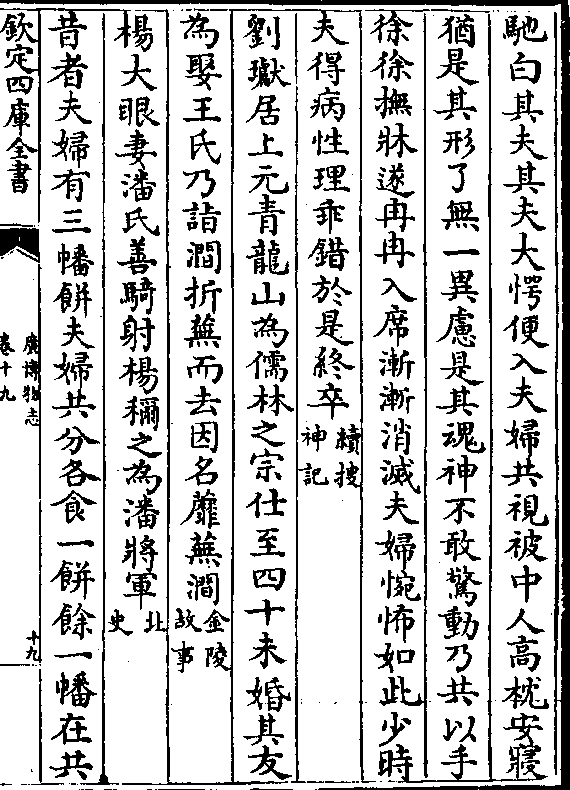 馳白其夫其夫大愕便入夫婦共視被中人高枕安寢
猶是其形了無一異慮是其魂神不敢驚動乃共以手
徐徐撫牀遂冉冉入席漸漸消滅夫婦惋怖如此少時
夫得病性理乖錯於是終卒續搜神記
劉瓛居上元青龍山為儒林之宗仕至四十未婚其友
為娶王氏乃詣澗折蕪而去因名蘼蕪澗金陵故事
楊大眼妻潘氏善騎射楊稱之為潘將軍北史
昔者夫婦有三幡餅夫婦共分各食一餅餘一幡在共
欽定四庫全書
廣博物志
卷十九
十九